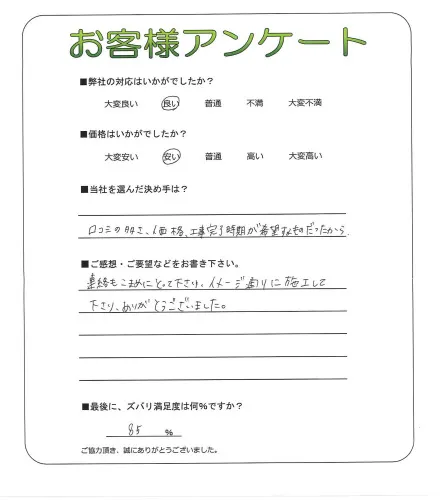 お客様アンケート
■弊社の対応はいかがでしたか？
大変良い 良い 普通 不満 大変不満
■価格はいかがでしたか？
大変安い 安い 普通 高い 大変高い
■当社を選んだ決め手は？
口コミの多さ、価格、工事完了時期が希望なものだったから
■ご感想・ご要望などをお書き下さい。
連絡もこまめにとって下さり、イメージ通りに施工して
下さり、ありがとうございました。
■最後に、ズバリ満足度は何％ですか？
85 ％
ご協力頂き、誠にありがとうございました。